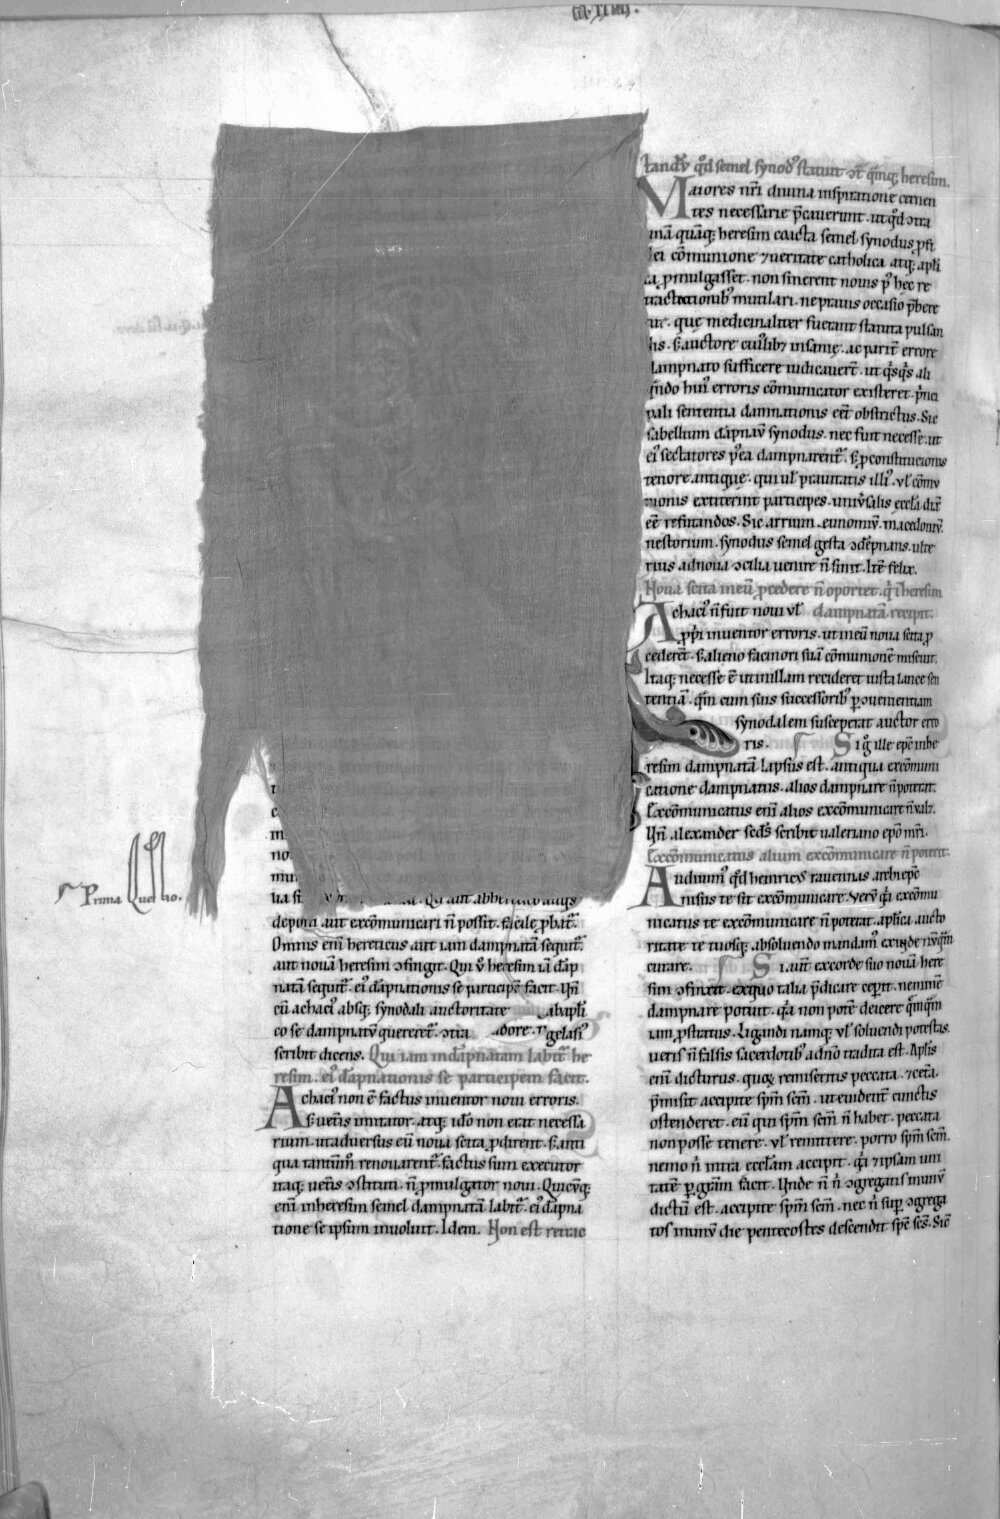 Prima Questio.
depona aut excõmunicari ñ possit. facile ꝓbat̃.
Omnis eni᷒ hereticus aut iam dampnatã sequit̃.
aut nouã heresim ɔfingit. Qui ṽ heresim iã dãp
natã sequit̃. ei᷒ dãpnationis se participẽ facit. Uñ
cũ achaci᷒ absq; synodali auctoritate
co se dampnatũ quereret̃. gelasi᷒
scribit dicens. Qui iam in dãpnatam labit̃ he
resim. ei᷒ dãpnationis se participem facit.
Achaci᷒ non ẽ factus inuentor noui erroris.
s; uet̃is imitator. atq; idõ non erat necessa
rium. ut aduersus eũ noua scita ꝓdirent. s; anti
qua tantum᷒ renouarent̃. factus sum executor
itaq; uet̃is ɔstituti. ñ ꝓmulgator noui. Quicũq;
eni᷒ in heresim semel dampnatã labit̃. ei᷒ dãpna
tione se ipsum inuoluit. Idem. Non est retrac
tandũ qd̃ semel synod᷒ statuit ɔt̃ q̃mq; heresim.
Maiores nr̃i diuina inspiratione cernen
tes necessarie p̃cauerunt. ut qd̃ ɔtra
unã quãq; heresim coacta semel synodus ꝓ fi
dei cõmunione ⁊ ueritate catholica atq; apl̃i
ca ꝓmulgasset. non sinerent nouis p᷒ hec re
tractationib᷒ mutilari. ne prauis occasio p̃bere
tur. quę medicinaliter fuerant statuta pulsan
dis. s; auctore cui᷒lib; insanię. ac parit̃ errore
dampnato sufficere iudicauer̃t. ut q̇sq̇s ali
q̃ndo hui᷒ erroris cõmunicator existeret. p̃nci
pali sententia damnationis eẽt obstrictus. Sic
sabellium dãpnauit synodus. nec fuit necesse. ut
ei᷒ sectatores p᷒ea dampnarent̃. s; ꝓ constitutionis
tenore antiquę. qui uł prauitatis illi᷒. uł cõmu
nionis extiterint participes. uniũsalis ecclã dux̃
eẽ refutandos. Sic arrium. eunomiũ. macedoniũ.
nestorium. synodus semel gesta ɔdẽpnans. ulte
rius ad noua ɔcilia uenire ñ sinit. Itẽ felix.
Noua scita in eũ ꝓcedere ñ oportet. q̇ ĩ heresim
dampnatã recipit.
Achaci᷒ ñ fuit noui uł
ꝓp̃i inuentor erroris. ut in eũ noua scita ꝓ
cederẽt. s; alieno facinori suã cõmunionẽ miscuit.
Itaq; necesse ẽ ut in illam recideret iusta lance sen
tentiã. q̃m cum suis successorib᷒ ꝑ ɔuenientiam
synodalem susceperat auctor erro
ris. Si g̊ ille epc̃ in he
resim dampnatã lapsus est. antiqua excõmuni
catione dampnatus. alios dampnare ñ poterat.
Excõmunicatus eni᷒ alios excõmunicare ñ ualz.
Uñ alexander scd̃s scribit ualeriano ep̃o mr̃i.
Excõmunicatus alium excõmunicare ñ poterit.
Audiuim᷒ qd̃ heinric᷒ rauennas arch epc̃
nisus te sit excõmunicare. Verũ q̇ excõmu
nicatus te excõmunicare ñ poterat. apl̃ica aucto
ritate te tuosq; absoluendo mandam᷒ exinde nũq̃m
curare. Si aut̃ ex corde suo nouã here
sim ɔfinxit. ex quo talia p̃dicare cepit. neminẽ
dampnare potuit. q̇a non potest deicere q̃mq̃m
iam ꝓstratus. Ligandi namq; uł soluendi potestas.
ueris ñ falsis sacerdotib᷒ a dño tradita est. Apl̃is
eni᷒ dicturus. quoꝝ remiseritis peccata. ⁊ cet̃a.
p̃misit accipite sp̃m scm̃. ut euident̃ cunctis
ostenderet. eũ qui sp̃m scm̃ ñ habet. peccata
non posse tenere. uł remittere. porro sp̃m scm̃.
nemo ñ intra eccłam accipit. q̇a ⁊ ipsam uni
tatẽ ꝑ grãm facit. Unde ñ ñ ɔgregatis in unũ
dictũ est. accipite sp̃m scm̃. nec ñ suꝑ ɔgrega
tos in unũ die pentecostes descendit sp̃c scs̃. Sic